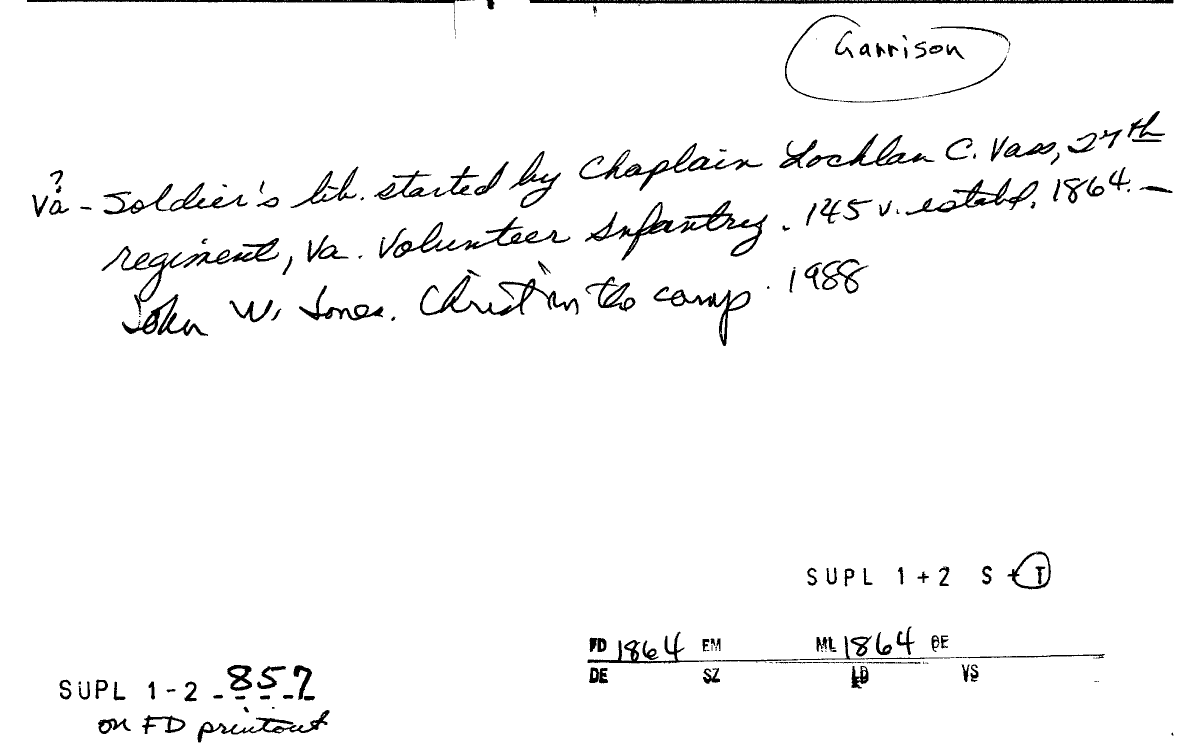 Garrison
?
Va - Soldier's lib. started by Chaplain Lochlan C. Vass, 27th
regiment, Va. Volunteer Infantry. 145 v. establ. 1864. —
John W. Jones. Christ in the camp. 1988
SUPL 1+2 S + T
FD 1864 EM ML 1864 BE
DE SZ LB VS
SUPL 1-2 - 857
on FD printout